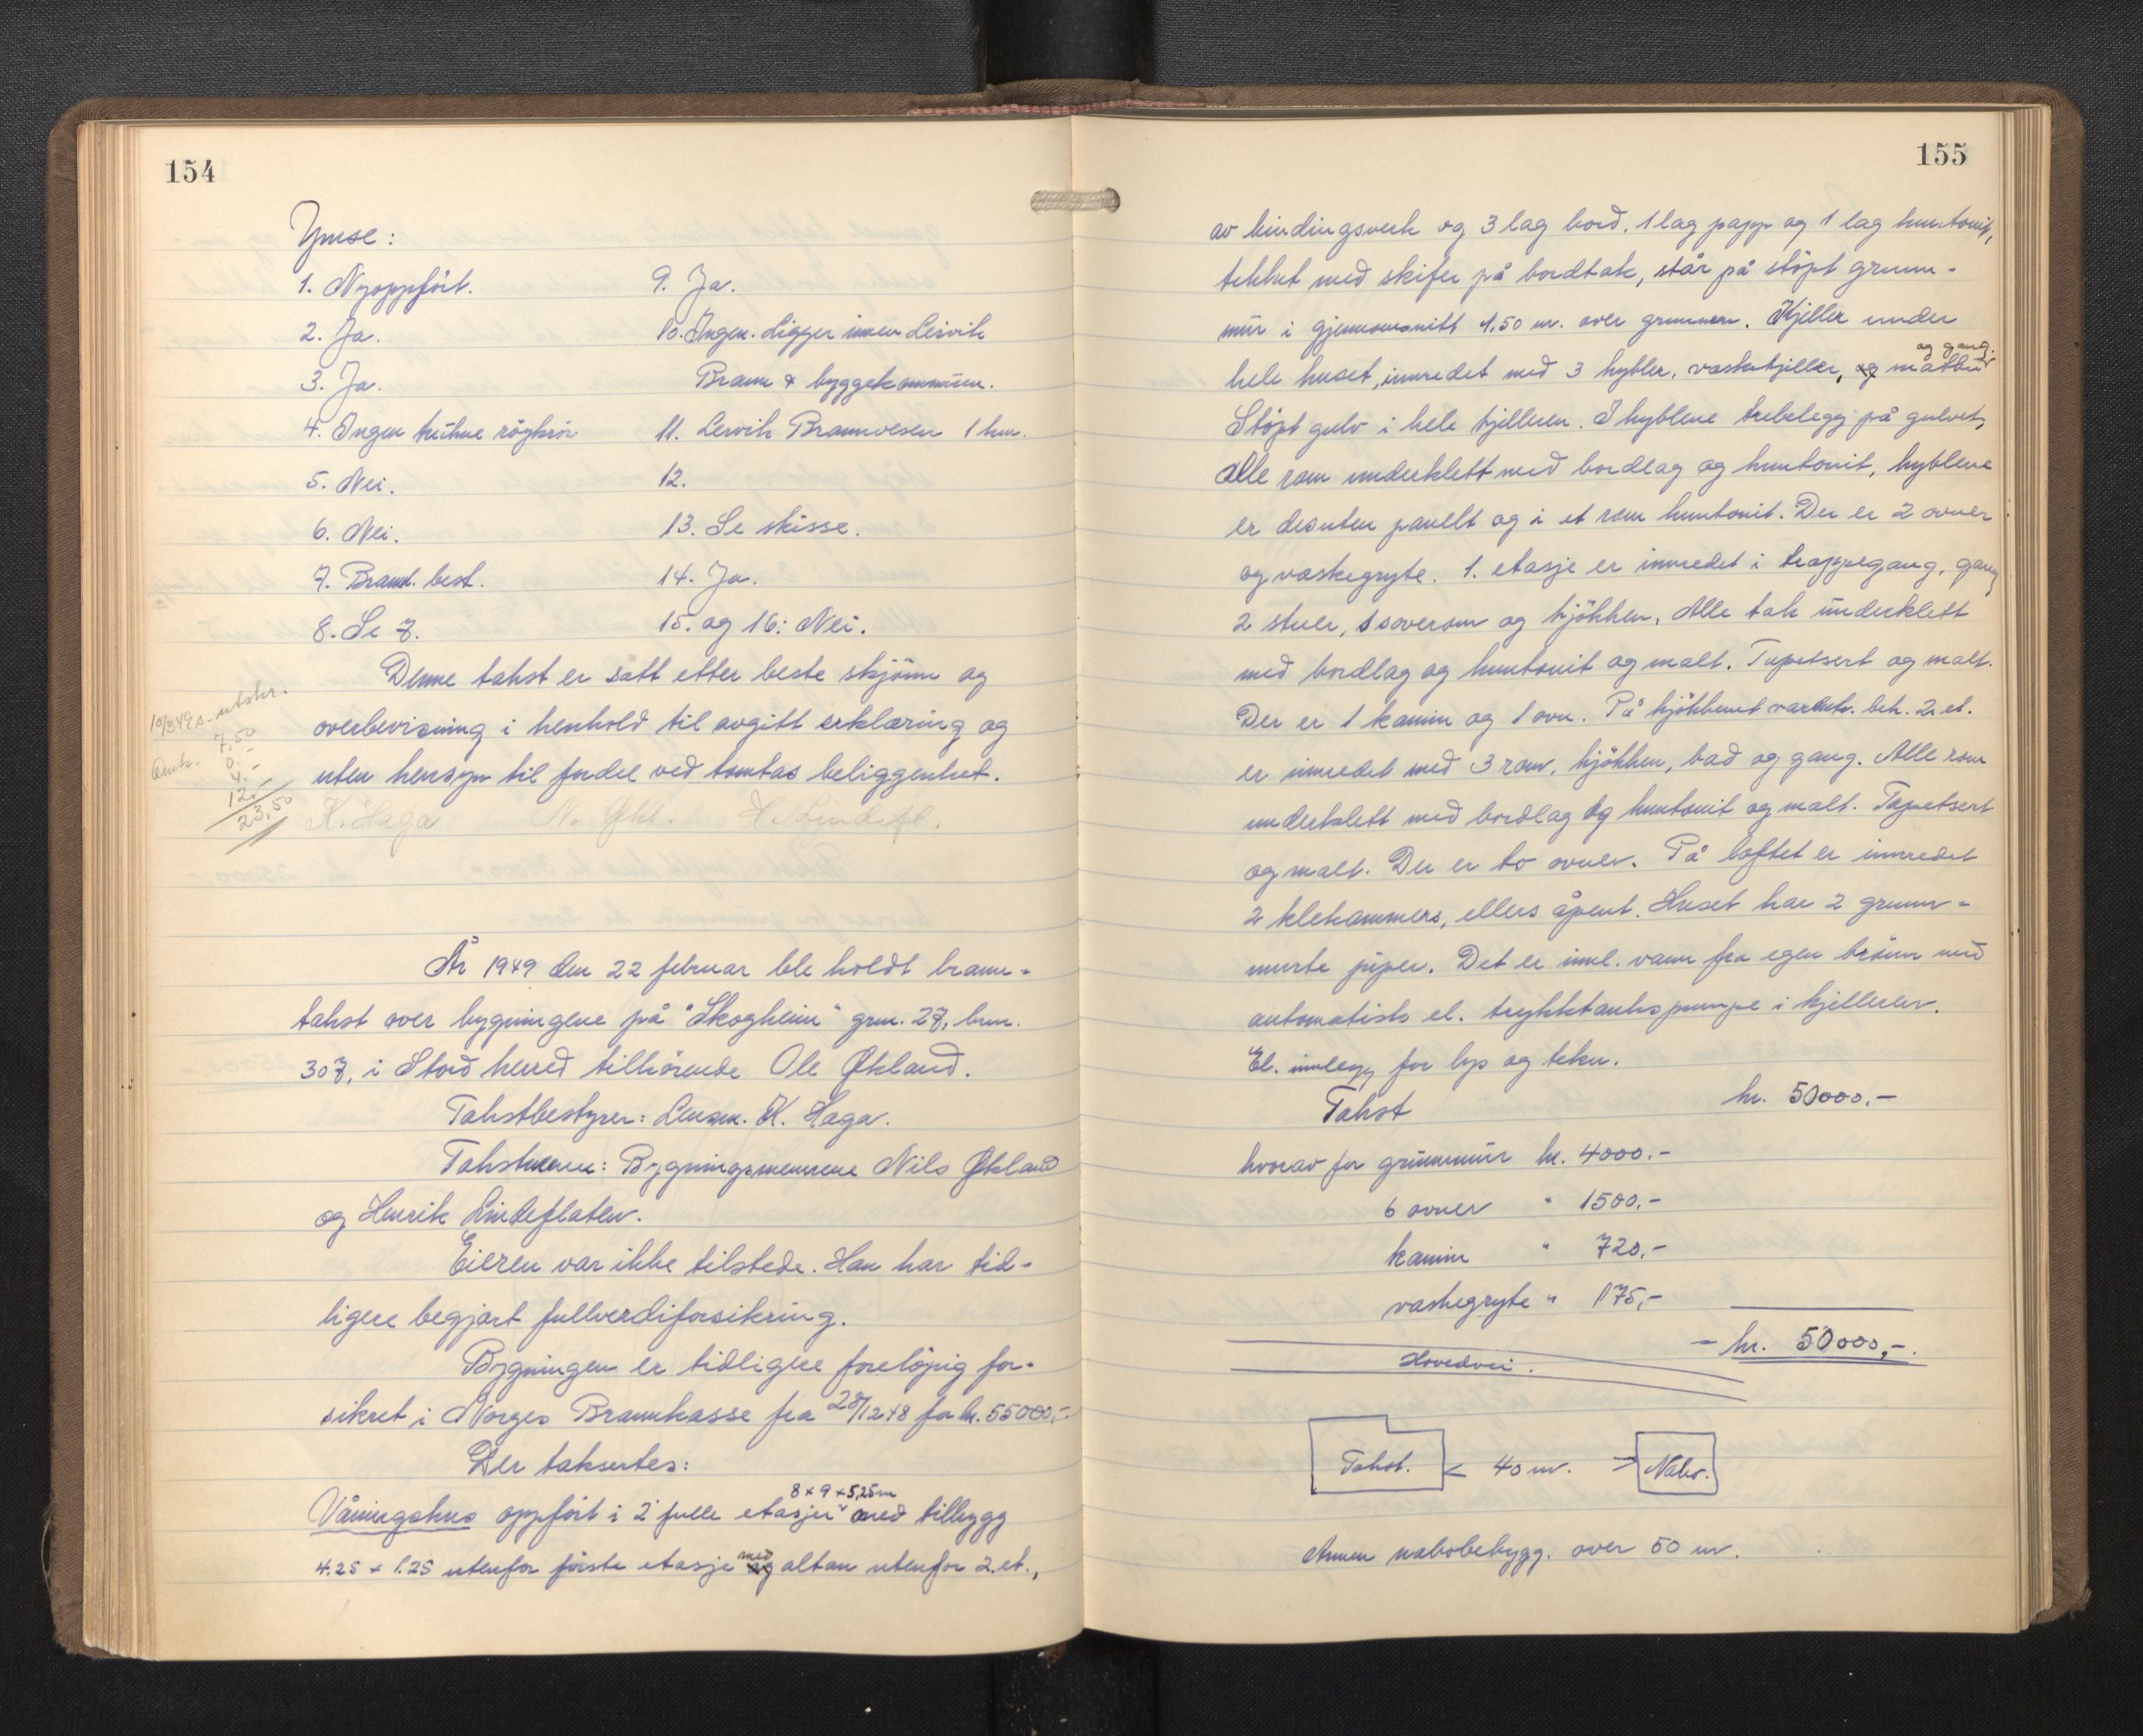 154
Ymse:
1. Nyoppført.
2. Ja.
3. Ja.
4. Ingen trühne röykrör
5. Nei.
6. Nei.
7. Brannd. best.
8. Se 7.
9. Ja.
10. Ingen. Ligger innen Leirvik
Brann & byggekommune.
11. Lervik Brannvesen 1 km.
12.
13. Se skisse.
14. Ja.
15. og 16: Nei.
Denne takst er satt etter beste skjönn og
overbevisning i henhold til avgitt erklæring og
uten hensyn til fordel ved tomtas beliggenhet.
K. Haga N. Økl. H. Lindefl.
10/3 49 s. utskr.
7,50
0.-
4.-
12.-
23,50
År 1949 den 22 februar ble holdt brann-
takst over bygningene på "Skogheim" grn. 27, brn.
307, i Stord herred tilhörende Ole Økland.
Takstbestyrer: Lensm. K. Haga.
Takstmenn: Bygningsmennene Nils Økland
og Henrik Lindeflaten.
Eieren var ikke tilstede. Han har tid-
ligere begjært fullverdiforsikring.
Bygningen er tidligere foreløpig for-
sikret i Norges Brannkasse fra 28/12 48 for kr. 55000,-
Der taksertes:
8 x 9 x 5,25 m
Våningshus oppfört i 2 fulle etasjer med tilbygg
4.25 x 1.25 utenfor förste etasje med altan utenfor 2. et.,
155
av bindingsverk og 3 lag bord, 1 lag papp og 1 lag huntonit,
tekket med skifer på bordtak, står på stöpt grunn-
mur i gjennomsnitt 1,50 m. over grunnen. Kjeller under
hele huset, innredet med 3 hybler, vaskekjeller, matbud og gang.
Stöpt gulv i hele kjelleren. I hyblene trebelegg på gulvet,
Alle rom underklett med bordlag og huntonit, hyblene
er desuten panelt og i et rom huntonit. Der er 2 ovner
og vaskegryte. 1. etasje er innredet i trappegang, gang
2 stuer, 1 soverom og kjökken, Alle tak underklett
med bordlag og huntonit og malt. Tapetsert og malt.
Der er 1 kamin og 1 ovn. På kjökkenet varmtv. beh. 2. et.
er innredet med 3 rom, kjökken, bad og gang. Alle rom
underklett med bordlag og huntonit og malt. Tapetsert
og malt. Der er to ovner. På loftet er innredet
2 klekammers, ellers åpent. Huset har 2 grunn-
murte piper. Det er innl. vann fra egen brönn med
automatisk el. trykktankspumpe i kjelleren.
El. innlegg for lys og tekn.
Takst kr. 50000.-
hvorav for grunnmur kr. 4000.-
6 ovner " 1500.-
kamin " 720.-
vaskegryte " 175,-
- kr. 50000,-.
Hovedvei.
Takst. < 40 m. > Nabo.
Annen nabobebygg. over 50 m.